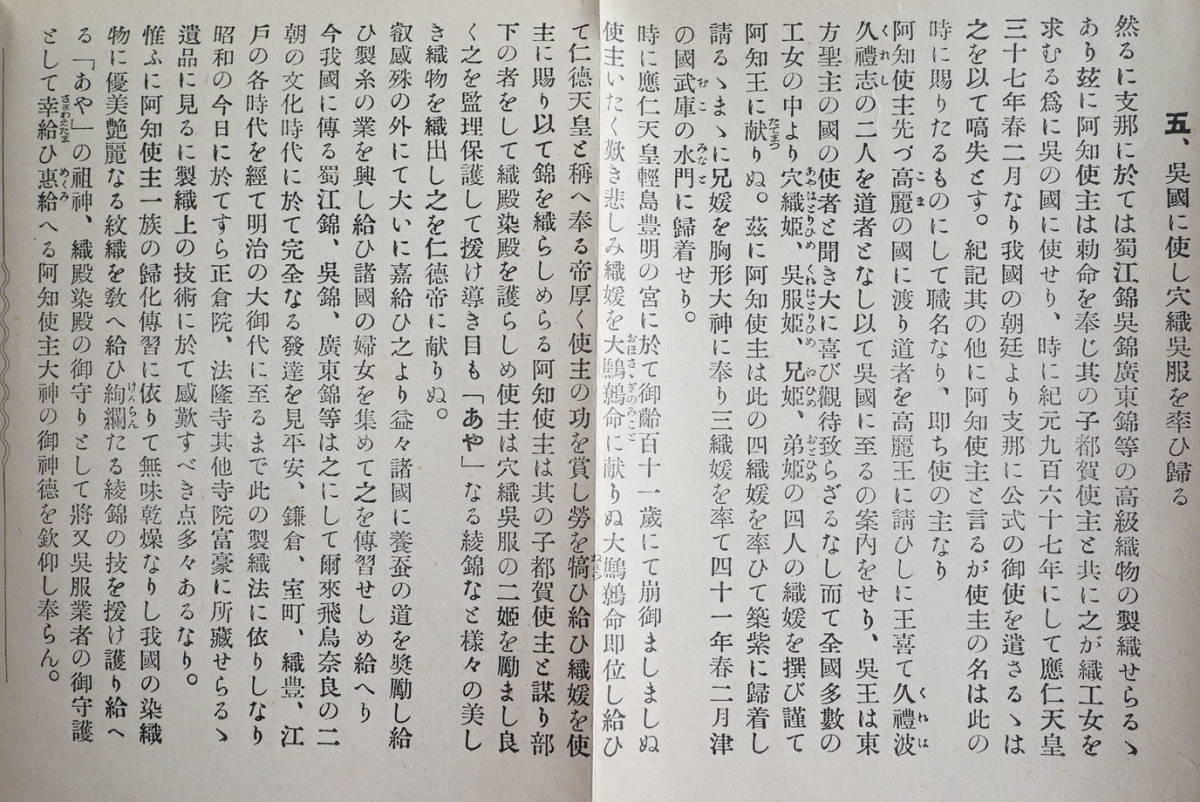 五、吳國に使し穴織吳服を率ひ歸る
然るに支那に於ては蜀江錦吳錦廣東錦等の高級織物の製織せらるゝ
あり玆に阿知使主は勅命を奉じ其の子都賀使主と共に之が織工女を
求むる爲に吳の國に使せり、時に紀元九百六十七年にして應仁天皇
三十七年春二月なり我國の朝廷より支那に公式の御使を遣さるゝは
之を以て嚆矢とす。紀記其の他に阿知使主と言るが使主の名は此の
時に賜りたるものにして職名なり、即ち使の主なり
阿知使主先づ高麗の國に渡り道者を高麗王に請ひしに王喜て久禮波
久禮志の二人を道者となし以て吳國に至るの案內をせり、吳王は東
方聖主の國の使者と聞き大に喜び觀待致らざるなし而て全國多數の
工女の中より穴織姬、吳服姬、兄姬、弟姬の四人の織媛を撰び謹て
阿知王に献りぬ。茲に阿知使主は此の四織媛を率ひて築紫に歸着し
請るゝまゝに兄媛を胸形大神に奉り三織媛を率て四十一年春二月津
の國武庫の水門に歸着せり。
時に應仁天皇輕島豊明の宮に於て御齡百十一歲にて崩御ましましぬ
使主いたく歎き悲しみ織媛を大鷦鷯命に献りぬ大鷦鷯命即位し給ひ
て仁德天皇と稱へ奉る帝厚く使主の功を賞し勞を犒ひ給ひ織媛を使
主に賜り以て錦を織らしめらる阿知使主は其の子都賀使主と謀り部
下の者をして織殿染殿を護らしめ使主は穴織吳服の二姬を勵まし良
く之を監理保護して援け導き目も「あや」なる綾錦なと樣々の美し
き織物を織出し之を仁德帝に献りぬ。
叡感殊の外にて大いに嘉給ひ之より益々諸國に養蚕の道を奬勵し給
ひ製糸の業を興し給ひ諸國の婦女を集めて之を傳習せしめ給へり
今我國に傳る蜀江錦、吳錦、廣東錦等は之にして爾來飛鳥奈良の二
朝の文化時代に於て完全なる發達を見平安、鎌倉、室町、織豊、江
戶の各時代を經て明治の大御代に至るまで此の製織法に依りしなり
昭和の今日に於てすら正倉院、法隆寺其他寺院富豪に所藏せらるゝ
遺品に見るに製織上の技術に於て感歎すべき点多々あるなり。
惟ふに阿知使主一族の歸化傳習に依りて無味乾燥なりし我國の染織
物に優美艶麗なる紋織を敎へ給ひ絢爛たる綾錦の技を援け護り給へ
る「あや」の祖神、織殿染殿の御守りとして將又吳服業者の御守護
として幸給ひ惠給へる阿知使主大神の御神德を欽仰し奉らん。